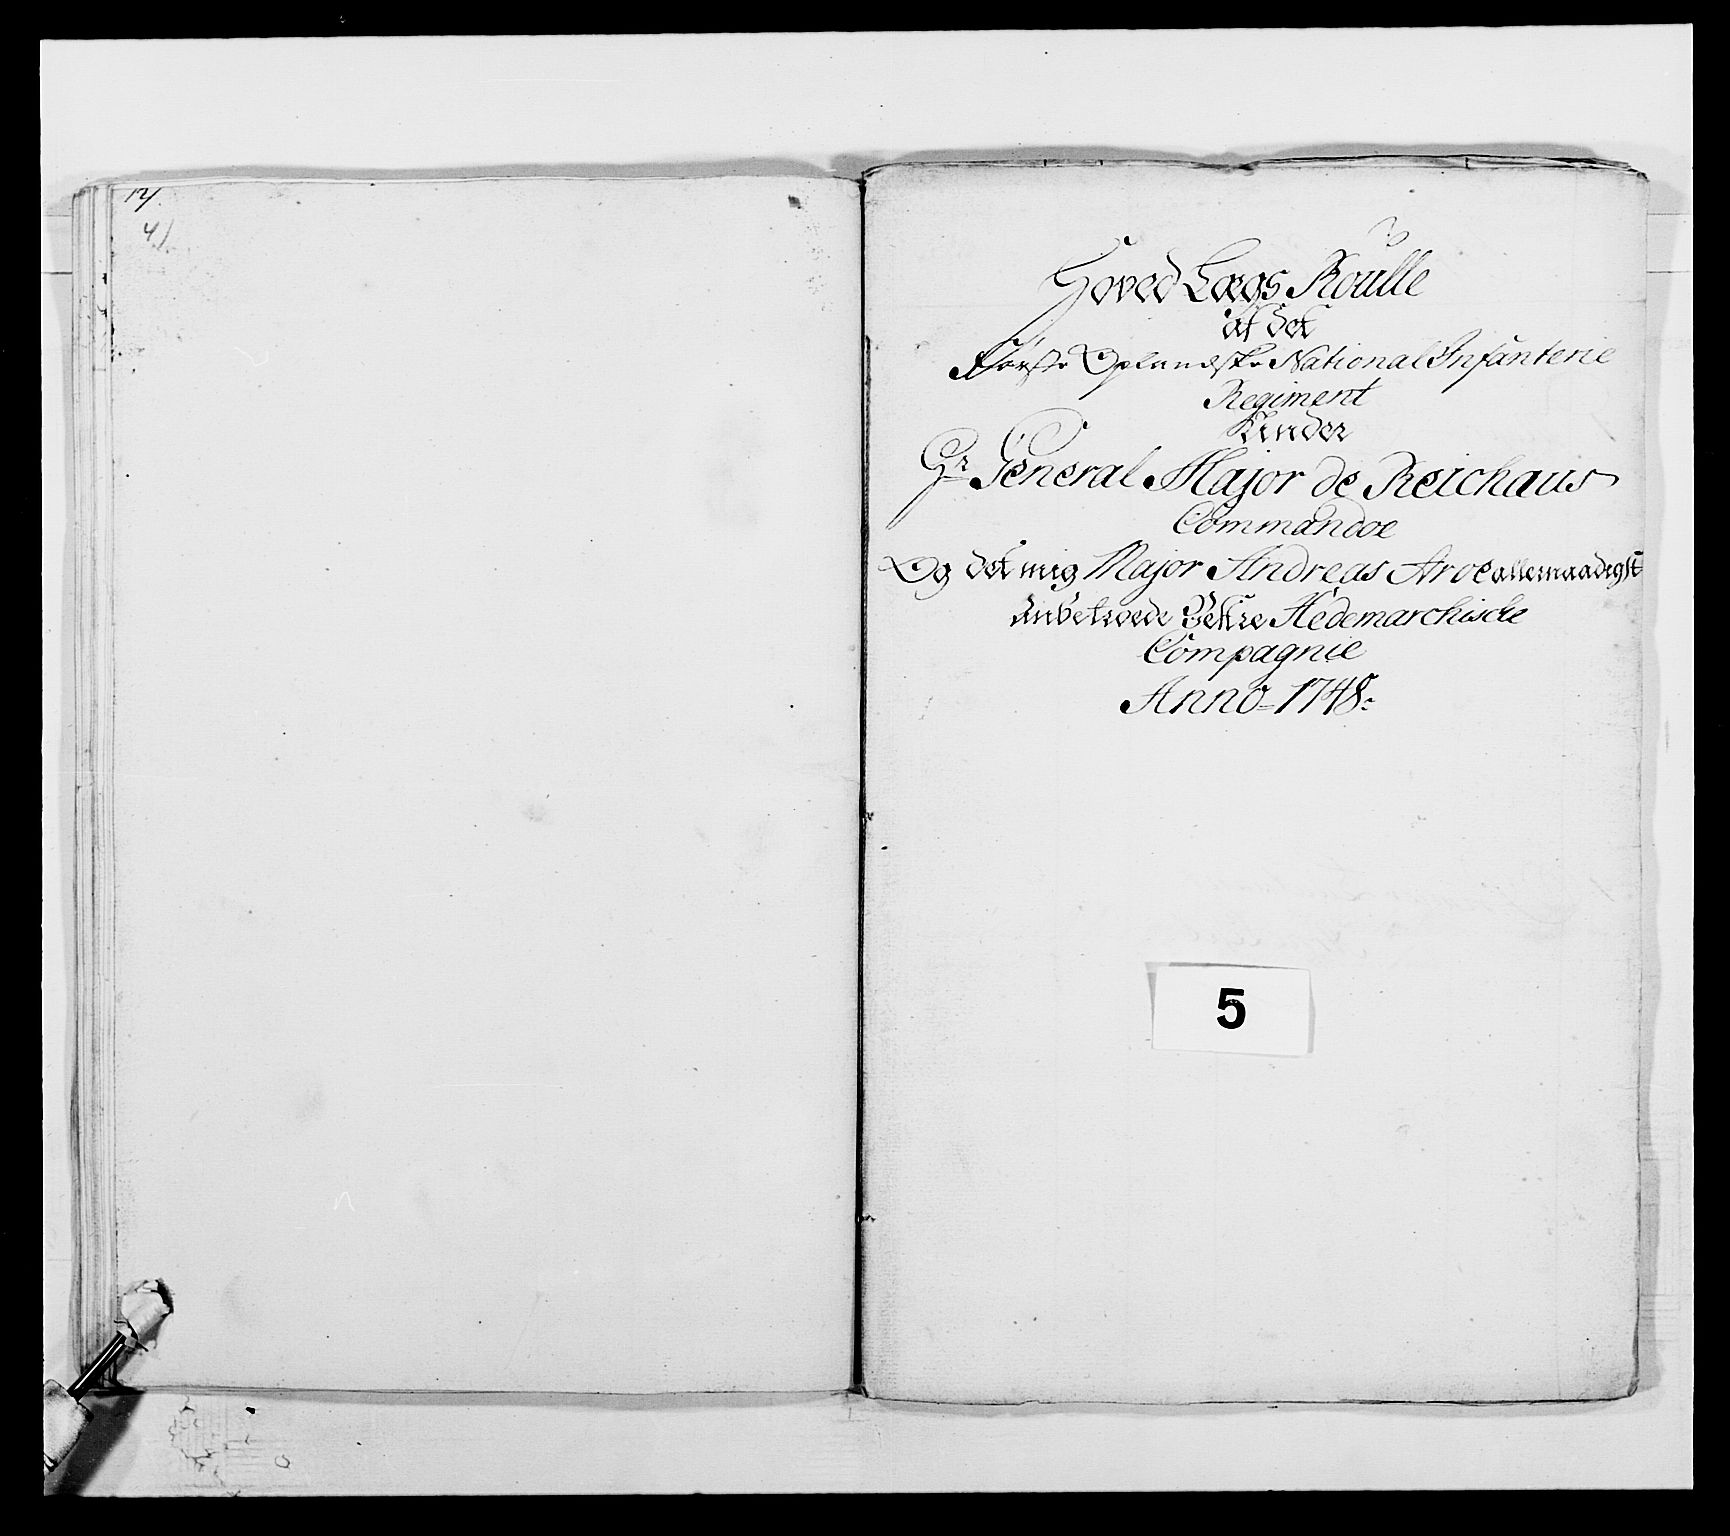 12/
4/
Hoved Lægs Roulle
af det
Første Oplandske National Infanterie
Regiment
Under
Hr General Major de Reichaus
Commandoe
Og det mig Major Andreas Aroe allernaadigst
Anbetroede Hedemarchische
Compagnie
Anno 1748.
5